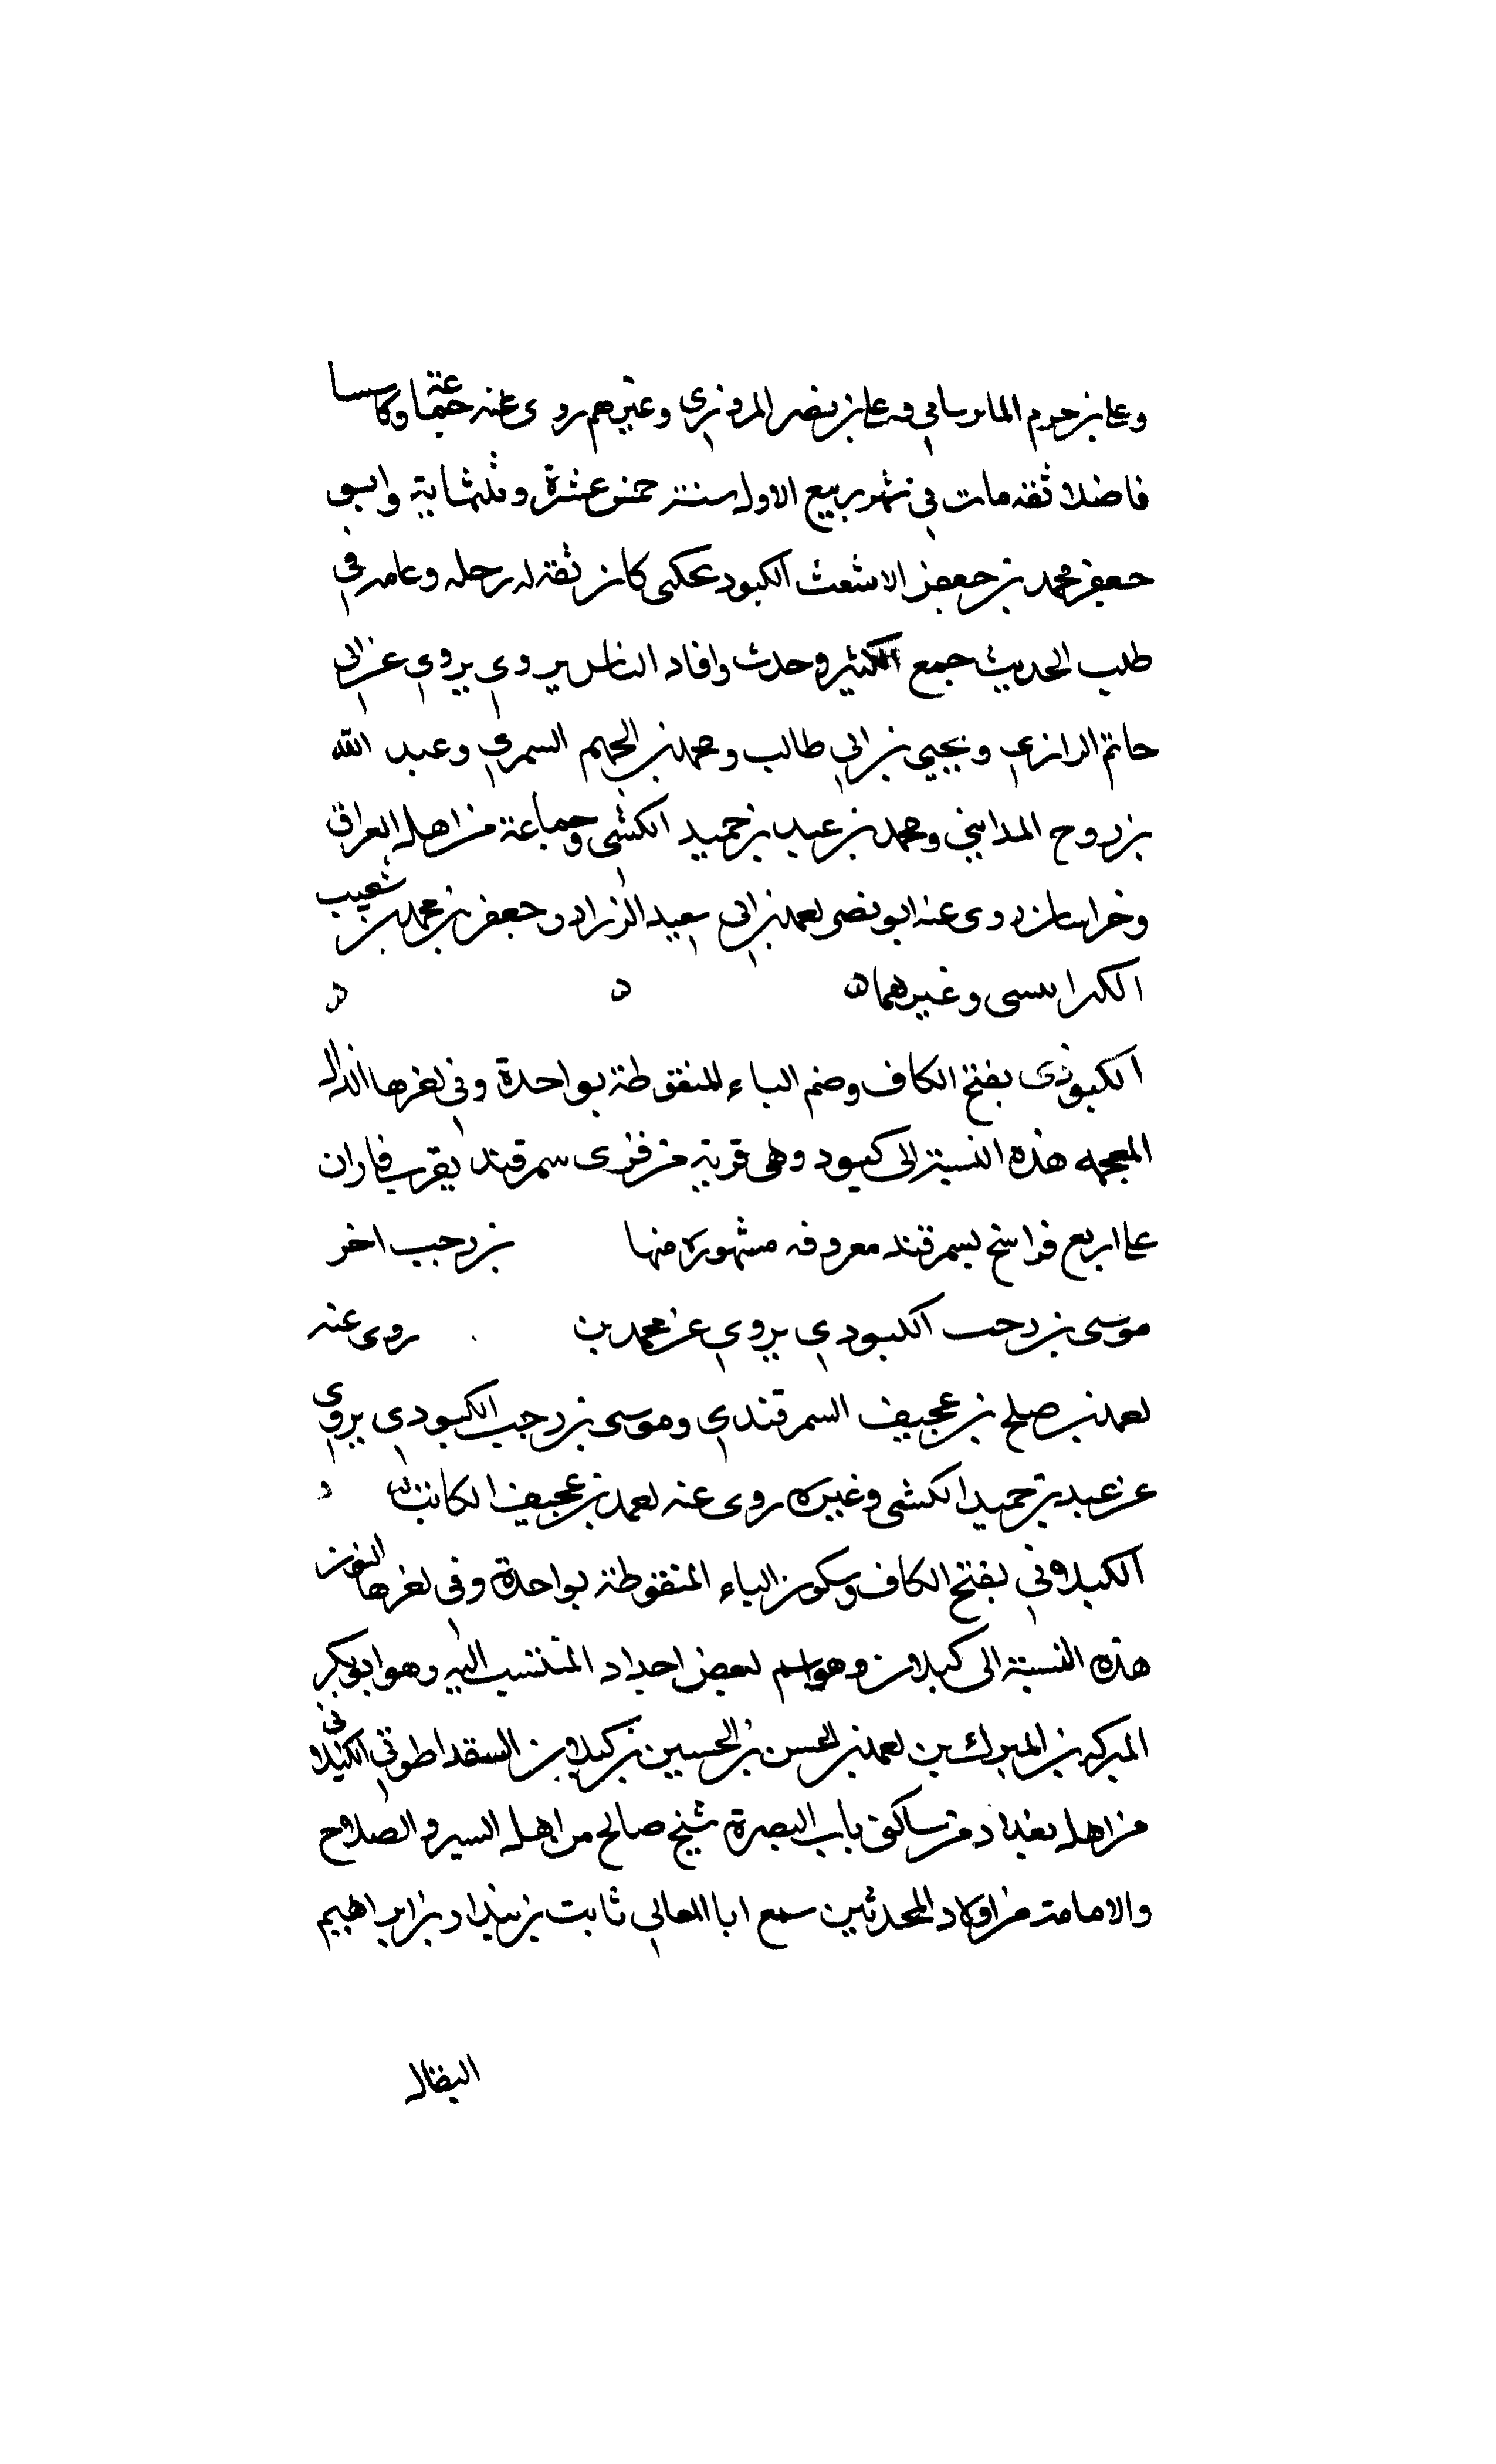 وعلى بن حرم الماىرسابي وعلى بن نصر المروزي وغيرهم روى عنه جماعة وكان
فاضلا ثقة مات في شهر ربيع الاول سنة خمس عشرة وثلثماية وابو
جعفر محمد بن جعفر الاشعث الكبودنجكثى كان ثقة له رحله وعامه في
طلب الحديث جمع الكثير وحدث وافاد الناس يروي يروي عن ابي
حاتم الرازي ويحيى بن ابي طالب ومحمد بن الجهم السمري وعبد الله
بن روح المدايني ومحمد بن عبد بن حميد الكشى وجماعة من اهل العراق
وخراسان روى عنه ابو نصر احمد بن ابي سعيد الزراد وجعفر بن محمد بن شعيب
الكرابيسى وغيرهما ه
الكبوذى بفتح الكاف وضم الباء المنقوطة بواحدة وفي اخرها الذال
المعجمه هذه النسبة الى كبود وهى قرية من قرى سمرقند بقرب فاران
على اربع فراسخ بسمرقند معروفه مشهوره منها بن رجب اخر
موسى بن رجب الكبودي يروي عن محمد بن روى عنه
احمد بن صلح بن عجيف السمرقندي وموسى بن رجب الكبودي يروي
عن عبد بن حميد الكشى وغيره روى عنه احمد بن عجيف الكاتب
الكبلاوني بفتح الكاف وسكون الباء المنقوطة بواحدة وفى اخرها النون
هذه النسبة الى كبلاون وهو اسم لبعض اجداد المنتسب اليه وهو ابو بكر
المبرك بن المبرك بن احمد بن الحسن بن الحسين بن كبلاون السقداطوني الكبلاوني
من اهل بغداد من ساكنى باب البصرة شيخ صالح من اهل السير والصلاح
والامامة من اولاد المحدثين سمع ابا المعالي ثابت بن بندار بن ابراهيم
البقال